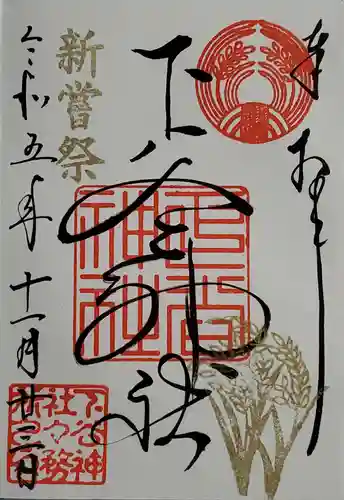 奉拝
下谷神社
新嘗祭
令和五年十一月廿三日
下谷
神社
下谷神
社々務